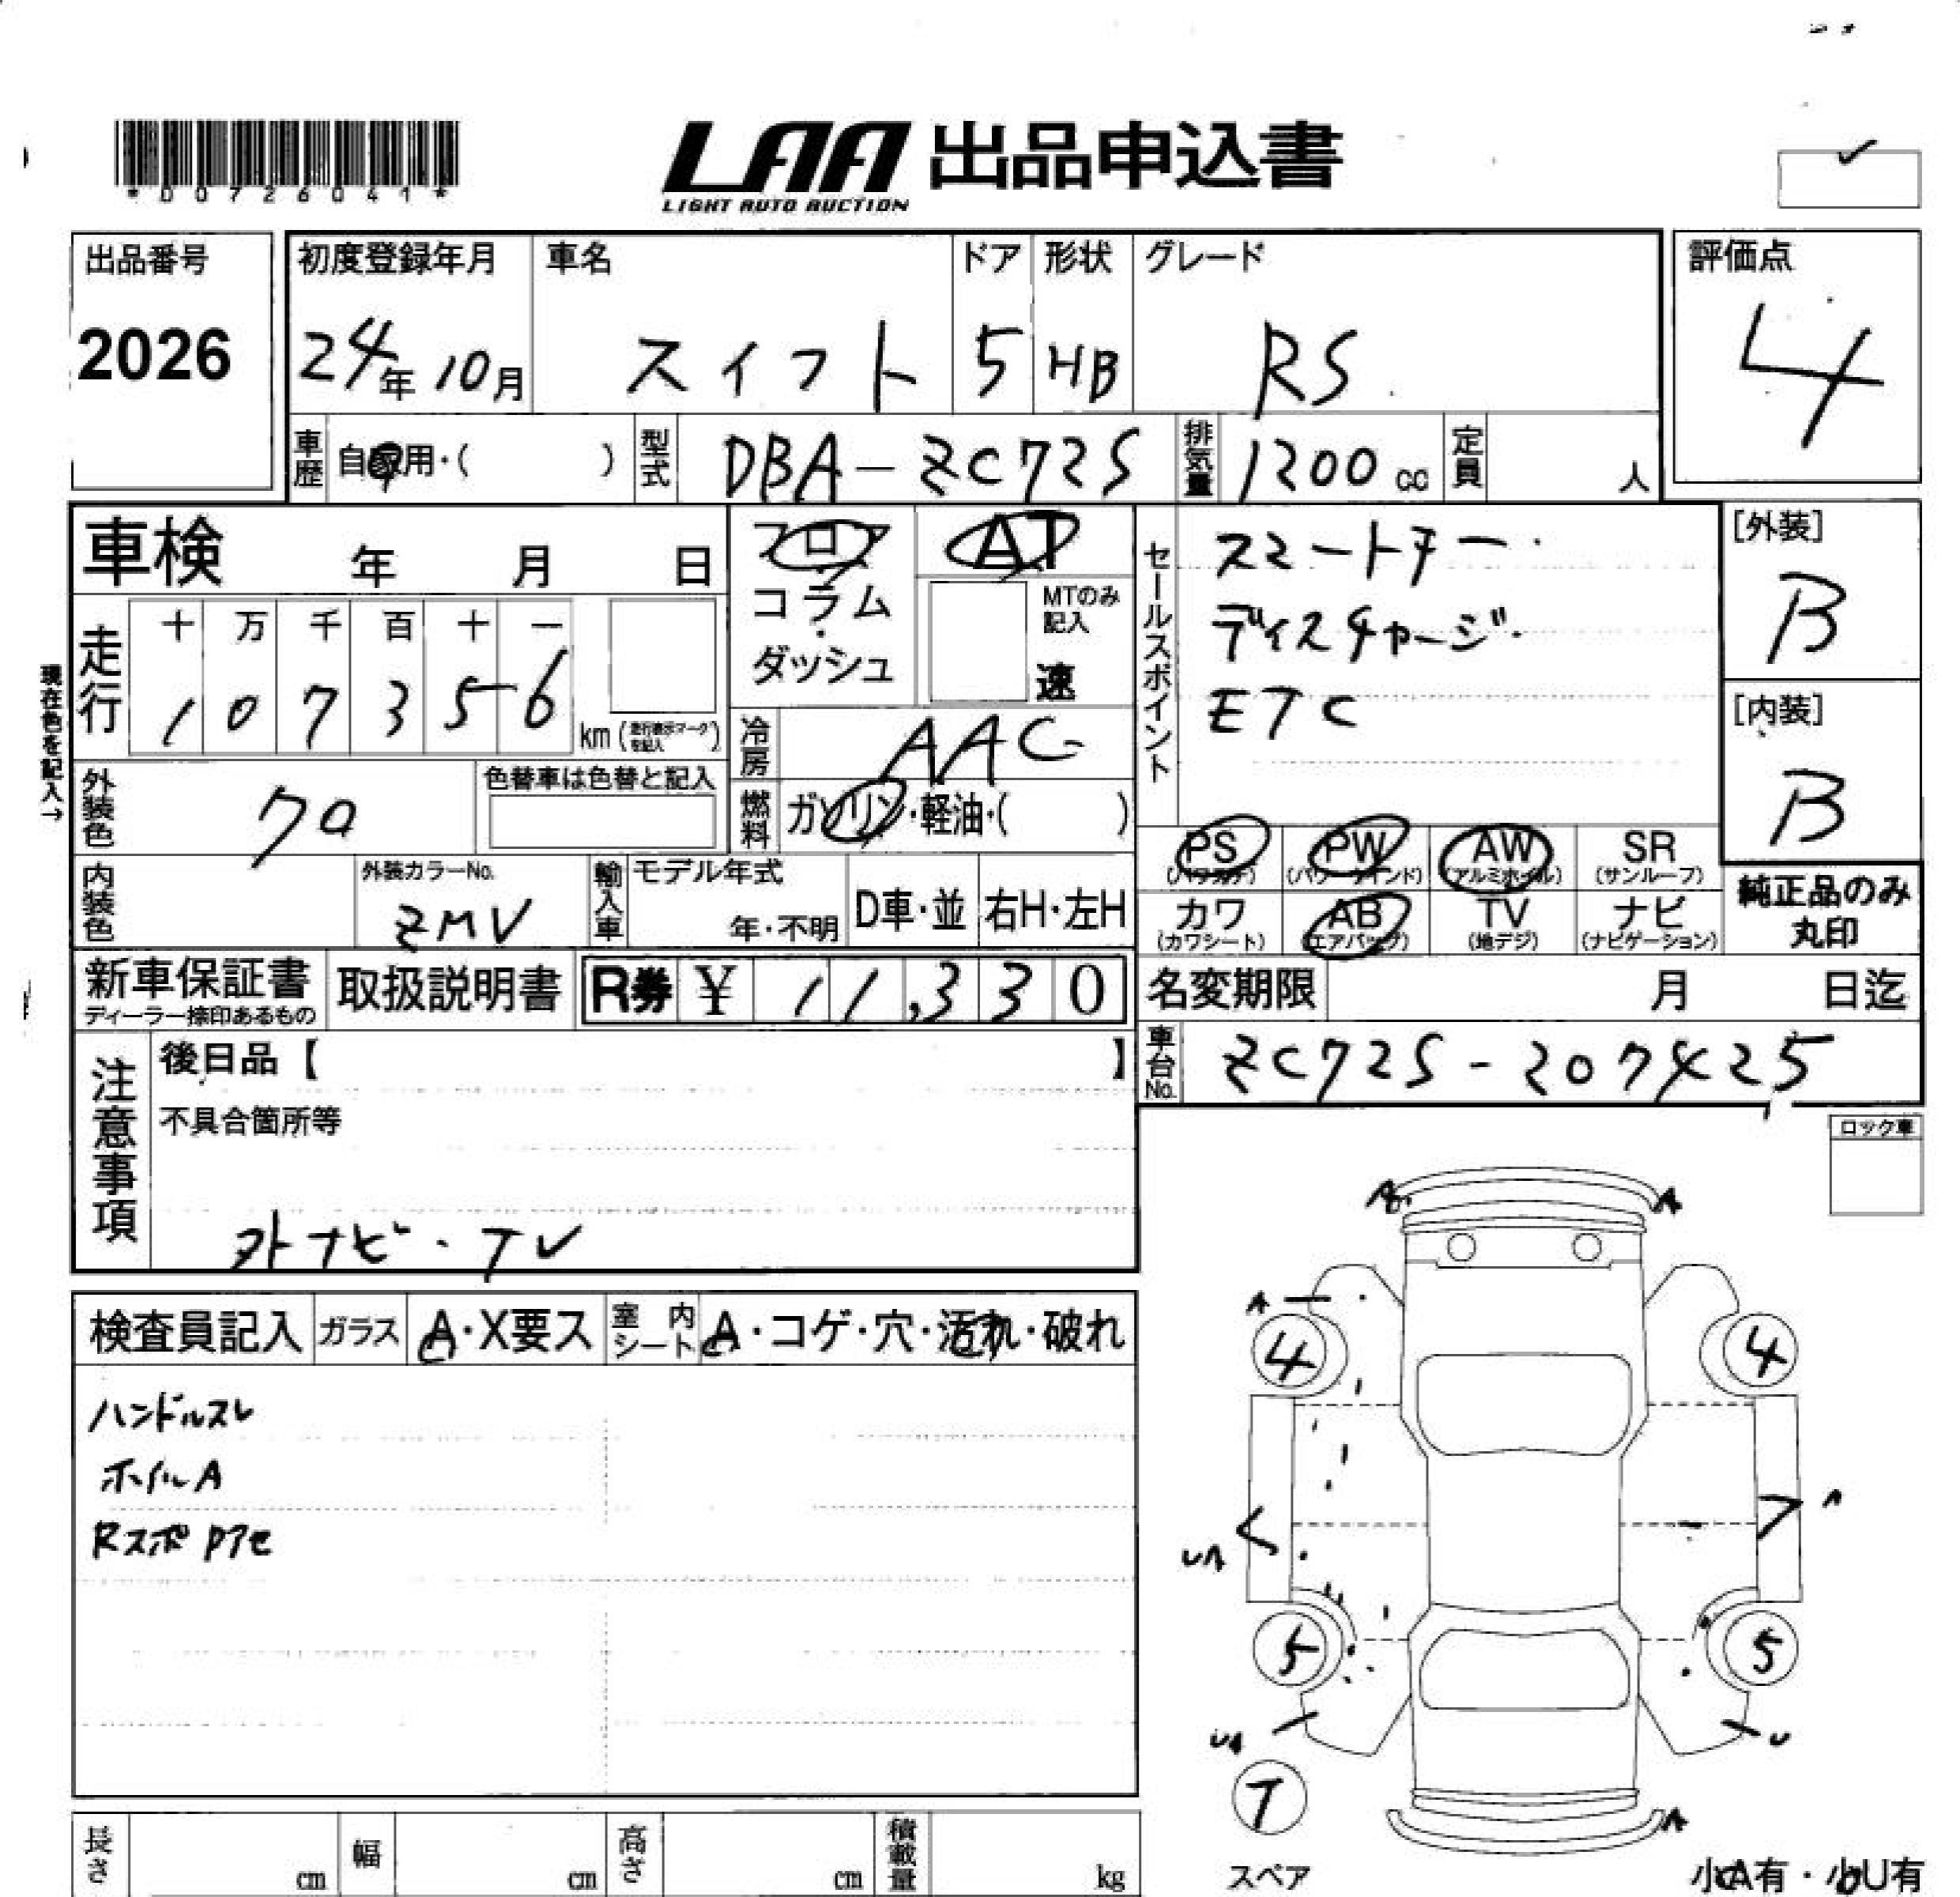 *D0726041*
LAA 出品申込書
LIGHT AUTO AUCTION
出品番号
2026
初度登録年月
24年10月
車名
スイフト
ドア
5
形状
HB
グレード
RS
評価点
4
車歴
自家用・( )
型式
DBA-ZC72S
排気量
1200cc
定員
人
車検 年 月 日
走行
十 万 千 百 十 一
1 0 7 3 5 6
km(走行表示マークを記入)
現在色を記入→
外装色
クロ
色替車は色替と記入
内装色
外装カラーNo.
ZMV
輸入車
モデル年式
年・不明
D車・並
右H・左H
フロア
・
コラム
・
ダッシュ
AT
MTのみ記入
速
冷房
AAC
燃料
ガソリン・軽油・( )
セールスポイント
スマートキー・
ディスチャージ・
ETC
[外装]
B
[内装]
B
PS
(パワステ)
PW
(パワーウインド)
AW
(アルミホイル)
SR
(サンルーフ)
カワ
(カワシート)
AB
(エアバック)
TV
(地デジ)
ナビ
(ナビゲーション)
純正品のみ
丸印
新車保証書
ディーラー捺印あるもの
取扱説明書
R券 ¥ 11,330
名変期限 月 日迄
車台No.
ZC72S-207425
注意事項
後日品【 】
不具合箇所等
外ナビ・TV
ロック車
検査員記入
ガラス
A・X要ス
室内シート
A・コゲ・穴・汚れ・破れ
ハンドルスレ
ホイルA
Rスポ Pアセ
A
A
A
4
4
A
UA
5
5
UA
U
T
A
スペア
小A有・小U有
長さ
cm
幅
cm
高さ
cm
積載量
kg